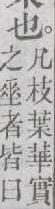 也。凡枝葉華實
之垂者皆曰